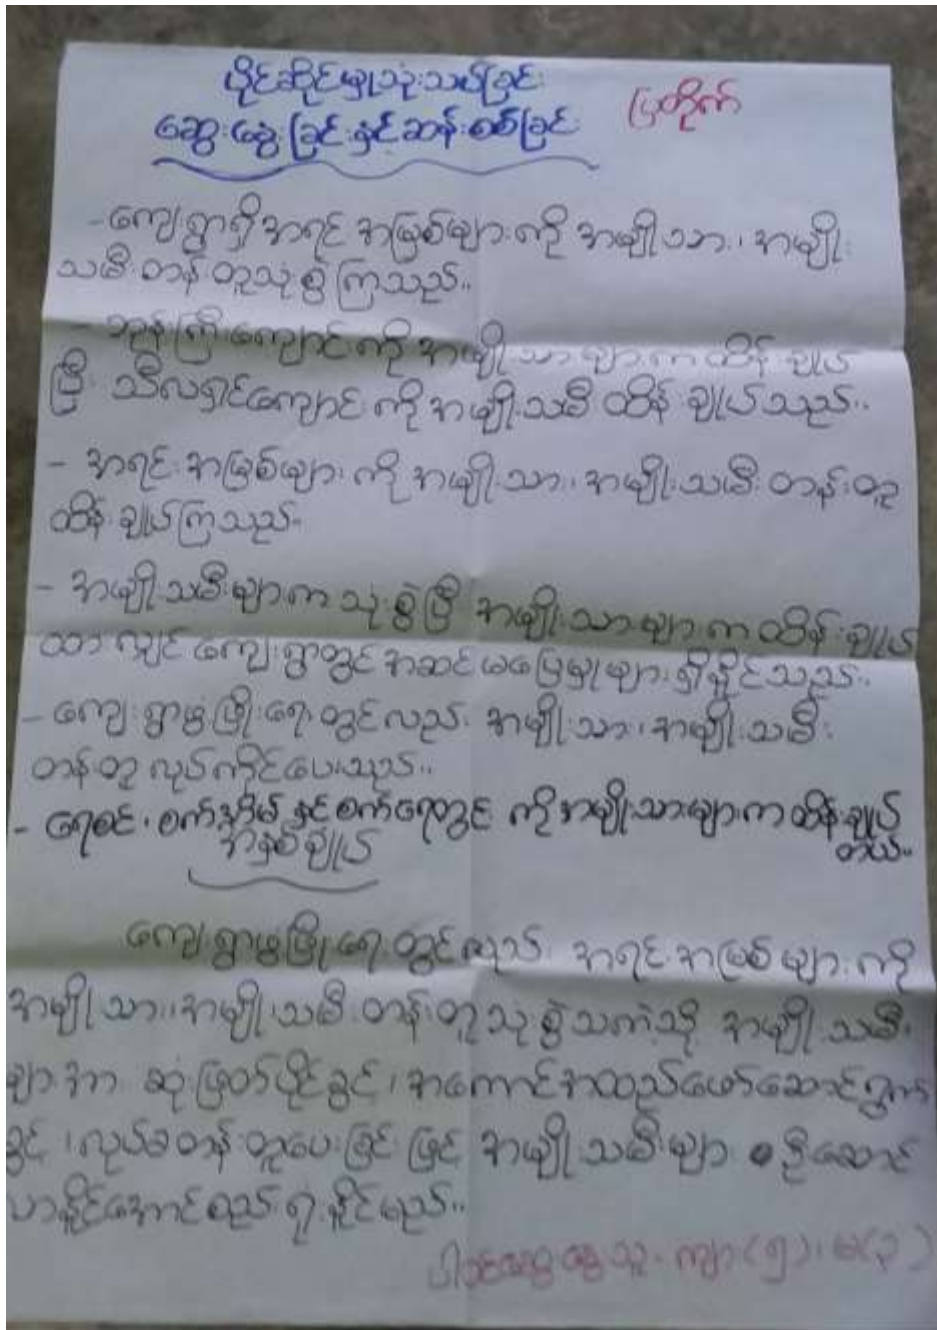 ပိုင်ဆိုင်မှုသုံးသပ်ခြင်း
ပြတိုက်
ဆွေးနွေးခြင်းနှင့်ဆန်းစစ်ခြင်း
- ကျေးရွာရှိအရင်းအမြစ်များကို အမျိုးသား၊ အမျိုး
သမီးတန်းတူသုံးစွဲကြသည်။
- ဘုန်းကြီးကျောင်းကို အမျိုးသားများက ထိန်းချုပ်
ပြီး သီလရှင်ကျောင်းကို အမျိုးသမီး ထိန်းချုပ်သည်။
- အရင်းအမြစ်များကို အမျိုးသား၊ အမျိုးသမီး တန်းတူ
ထိန်းချုပ်ကြသည်။
- အမျိုးသမီးများက သုံးစွဲပြီး အမျိုးသားများက ထိန်းချုပ်
ထားလျှင် ကျေးရွာတွင် အဆင်မပြေမှုများ ရှိနိုင်သည်။
- ကျေးရွာဖွံ့ဖြိုးရေးတွင်လည်း အမျိုးသား၊ အမျိုးသမီး
တန်းတူ လုပ်ကိုင်ပေးသည်။
- ရေစင်၊ စက်အိမ် နှင့်စက်ရေတွင်း ကိုအမျိုးသားများက ထိန်းချုပ်
တယ်။
အနှစ်ချုပ်
ကျေးရွာဖွံ့ဖြိုးရေးတွင်လည်း အရင်းအမြစ်များကို
အမျိုးသား၊ အမျိုးသမီး တန်းတူသုံးစွဲသကဲ့သို့ အမျိုးသမီး
များအား ဆုံးဖြတ်ပိုင်ခွင့်၊ အကောင်အထည်ဖော်ဆောင်ရွက်
ခွင့်၊ လုပ်ခတန်းတူပေးခြင်းဖြင့် အမျိုးသမီးများ စဉ်ဆောင်
လာနိုင်အောင်စည်းရုံးနိုင်မည်။
ပါဝင်ဆွေးနွေးသူ - ကျား(၅)၊ မ(၃)